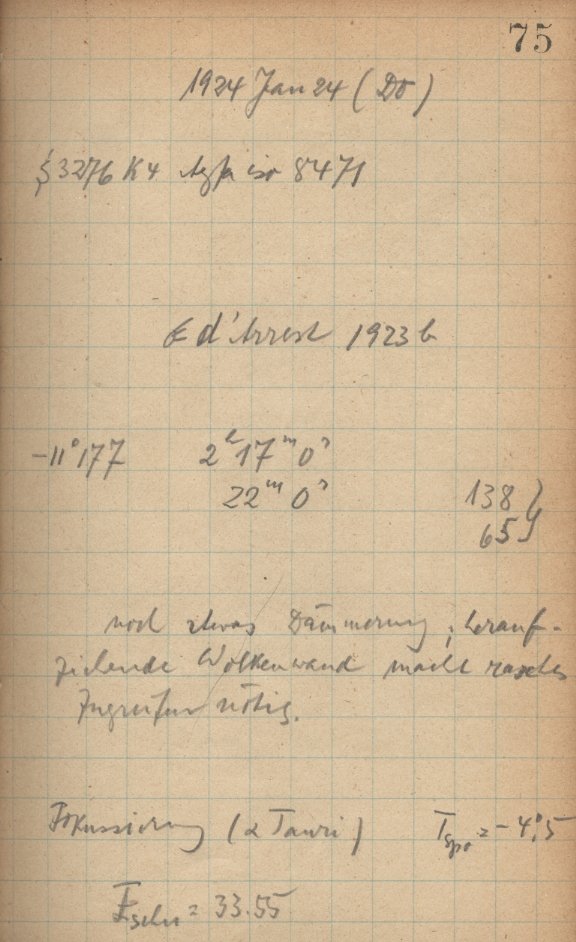 75
1924 Jan 24 (Do)
3276 K4 Agfa iso 8471
d'Arrest 1923 b
-11°177 2h 17m 0s
22m 0s 138
65
noch etwas Dämmerung; herauf-
ziehende Wolkenwand macht rasches
Zugreifen nötig.
Fokussierung (α Tauri) T = -4°,5
= 33.55